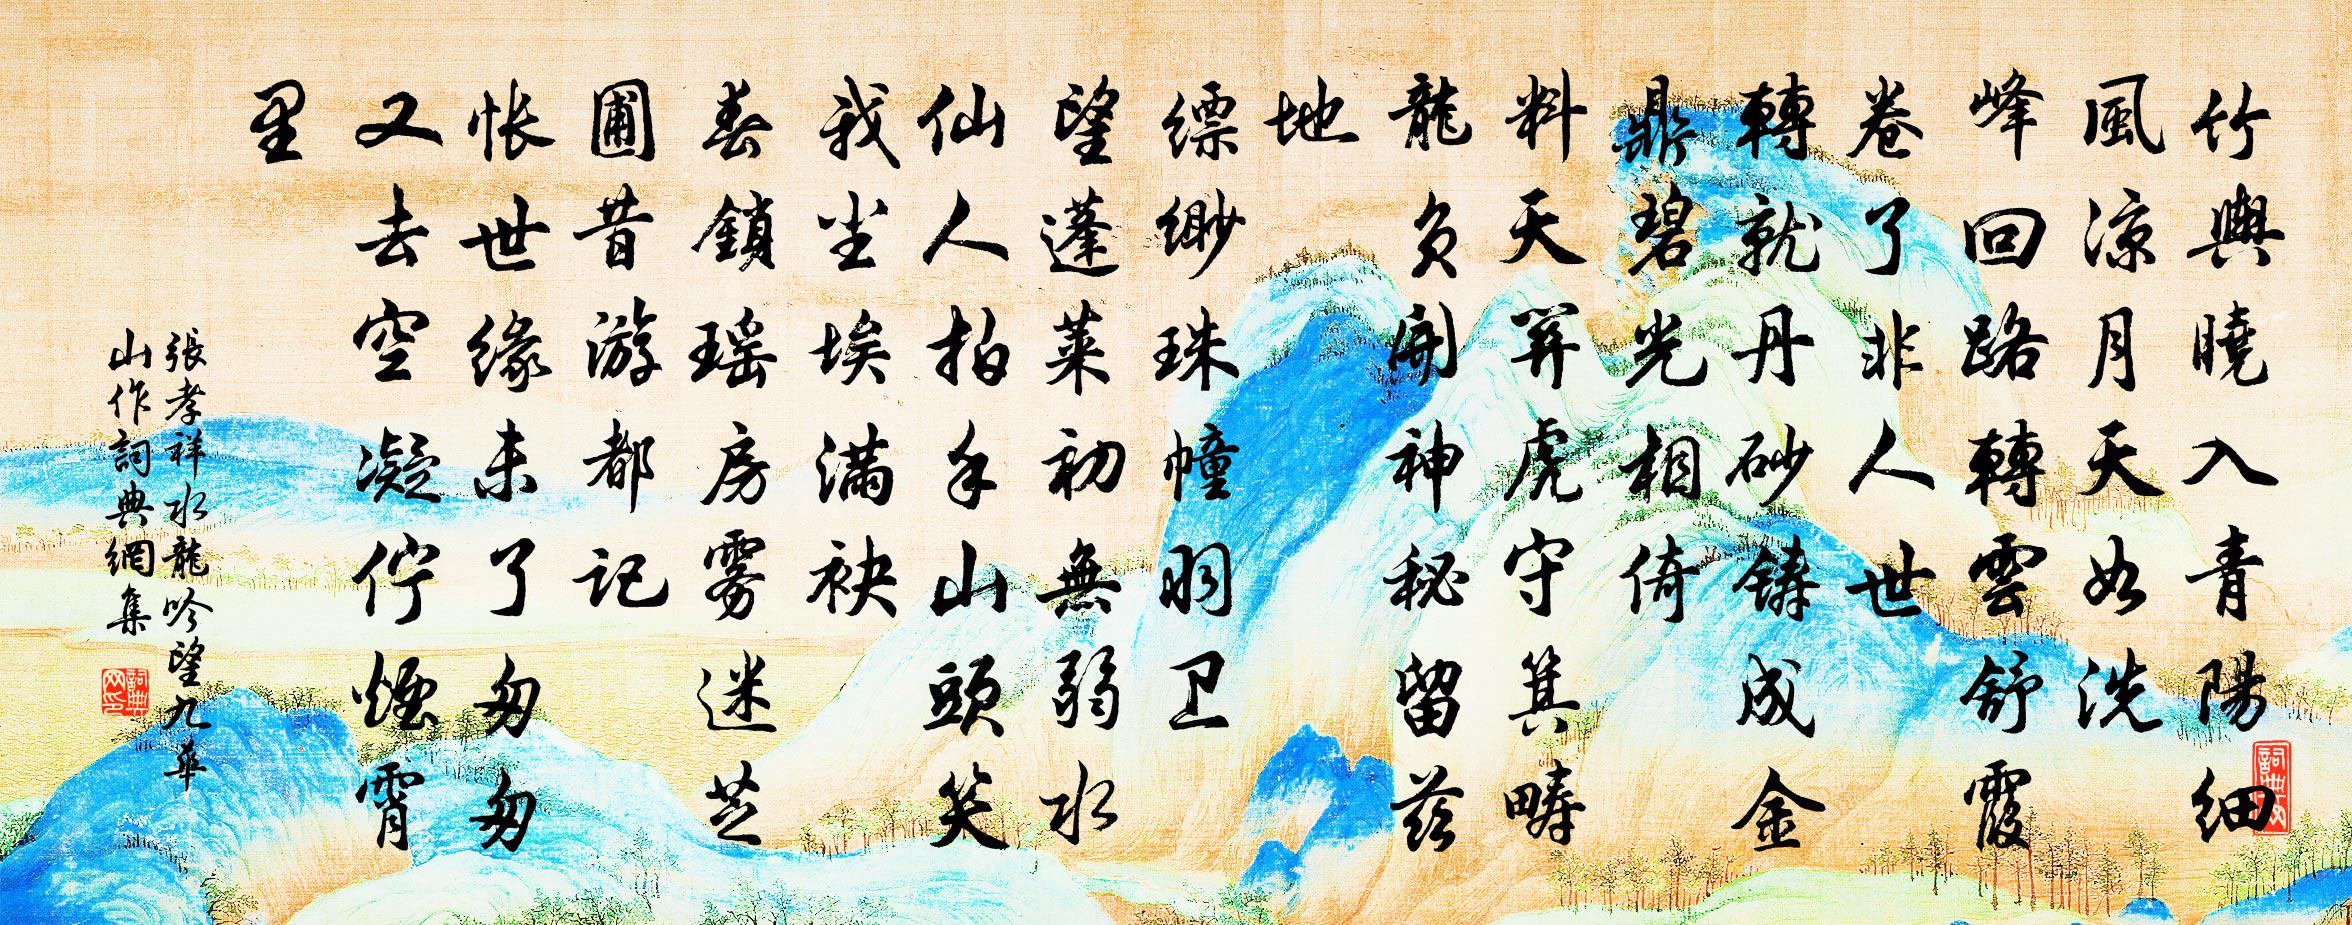 竹輿曉入青陽細
風涼月天如洗
峰回路轉雲舒霞
卷了非人世
轉就丹砂鑄成金
鼎碧光相倚
料天關虎守箕疇
龍負開神秘留茲
地
縹緲珠幢羽卫
望蓬萊初無弱水
仙人拍手山頭笑
我尘埃滿袂
春鎖瑶房雾迷芝
圃昔游都記
悵世緣未了匆匆
又去空凝佇煙霄
里
張孝祥水龍吟望九華
山作詞典網集
詞典網
詞典網印